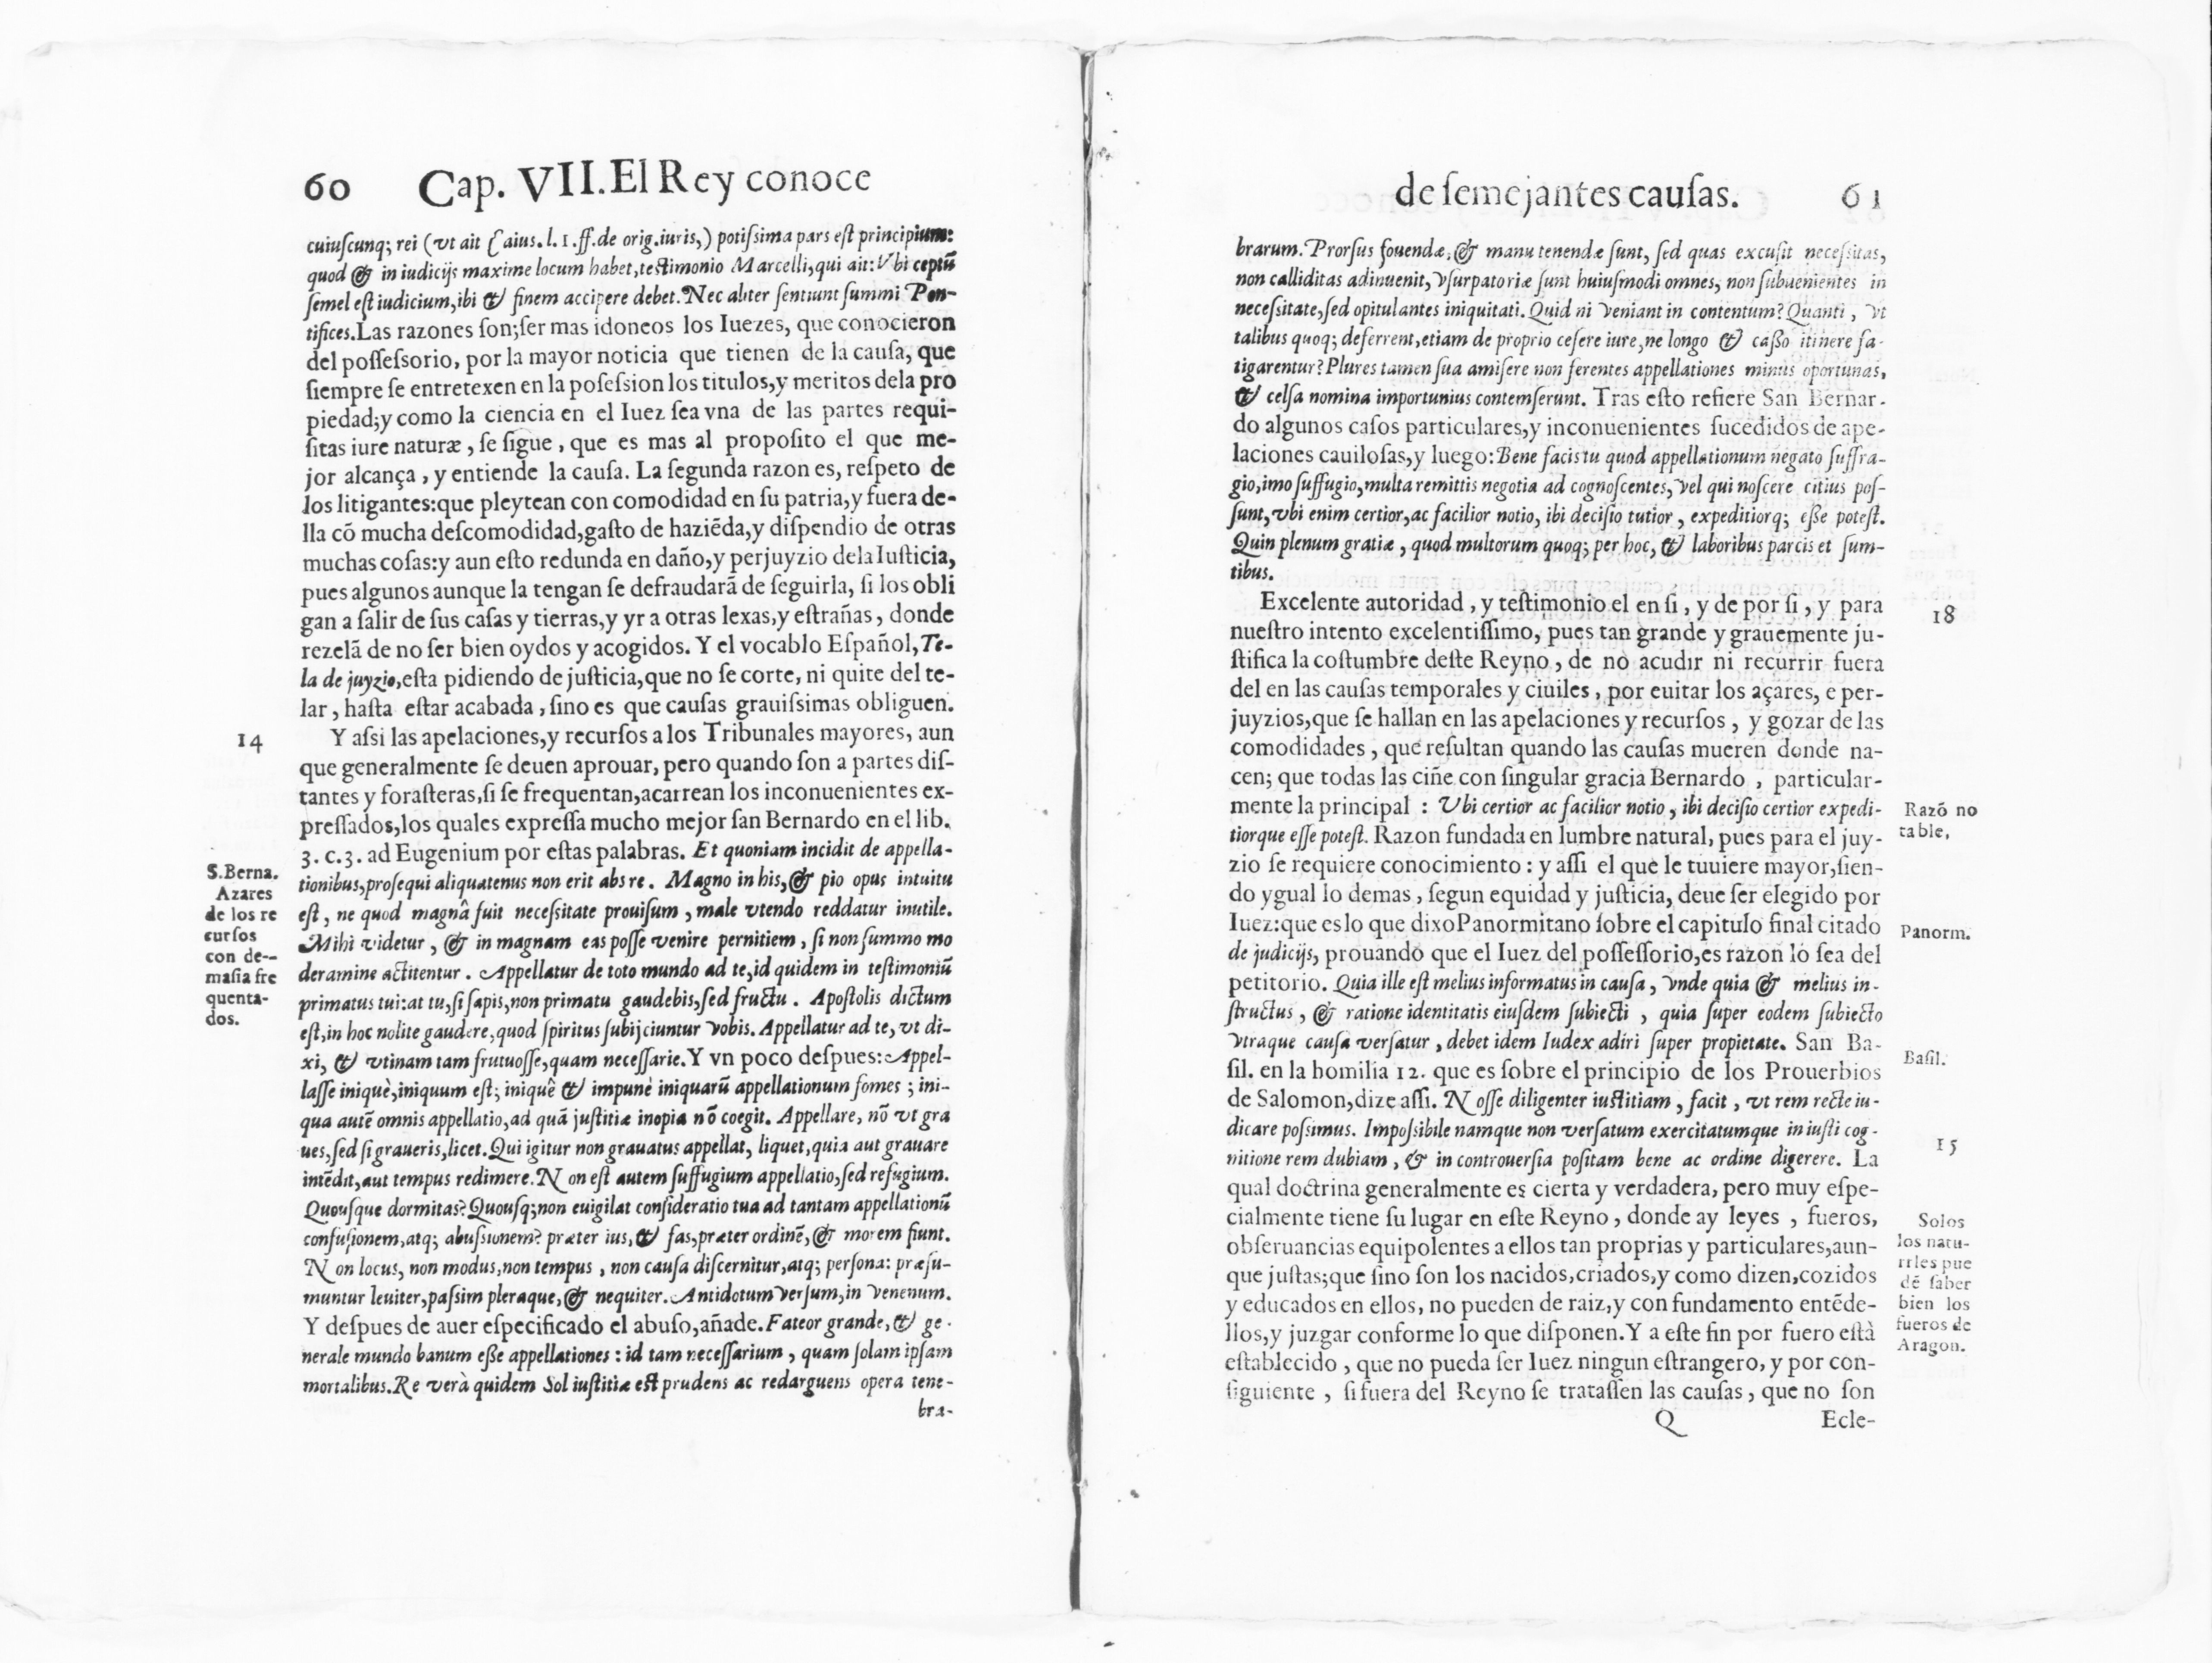 60 Cap. VII. El Rey conoce
cuiuſcunq; rei (vt ait Caius. l. 1. ff. de orig. iuris,) potiſsima pars eſt principium:
quod & in iudicijs maxime locum habet, teſtimonio Marcelli, qui ait: Vbi ceptũ
ſemel eſt iudicium, ibi & finem accipere debet. Nec aliter ſentiunt ſummi Pon-
tifices. Las razones ſon; ſer mas idoneos los Iuezes, que conocieron
del poſſeſsorio, por la mayor noticia que tienen de la cauſa, que
ſiempre ſe entretexen en la poſeſsion los titulos, y meritos dela pro
piedad; y como la ciencia en el Iuez ſea vna de las partes requi-
ſitas iure naturæ, ſe ſigue, que es mas al propoſito el que me-
jor alcança, y entiende la cauſa. La ſegunda razon es, reſpeto de
los litigantes: que pleytean con comodidad en ſu patria, y fuera de-
lla cõ mucha deſcomodidad, gaſto de haziẽda, y diſpendio de otras
muchas coſas: y aun eſto redunda en daño, y perjuyzio dela Iuſticia,
pues algunos aunque la tengan ſe defraudarã de ſeguirla, ſi los obli
gan a ſalir de ſus caſas y tierras, y yr a otras lexas, y eſtrañas, donde
rezelã de no ſer bien oydos y acogidos. Y el vocablo Eſpañol, Te-
la de juyzio, eſta pidiendo de juſticia, que no ſe corte, ni quite del te-
lar, haſta eſtar acabada, ſino es que cauſas grauiſsimas obliguen.
14 Y aſsi las apelaciones, y recurſos a los Tribunales mayores, aun
que generalmente ſe deuen aprouar, pero quando ſon a partes diſ-
tantes y foraſteras, ſi ſe frequentan, acarrean los inconuenientes ex-
preſſados, los quales expreſſa mucho mejor ſan Bernardo en el lib.
3. c. 3. ad Eugenium por eſtas palabras. Et quoniam incidit de appella-
tionibus, proſequi aliquatenus non erit abs re. Magno in his, & pio opus intuitu
eſt, ne quod magnâ fuit neceſsitate prouiſum, male vtendo reddatur inutile.
Mihi videtur, & in magnam eas poſſe venire pernitiem, ſi non ſummo mo
deramine actitentur. Appellatur de toto mundo ad te, id quidem in teſtimoniũ
primatus tui: at tu, ſi ſapis, non primatu gaudebis, ſed fructu. Apoſtolis dictum
eſt, in hoc nolite gaudere, quod ſpiritus ſubijciuntur vobis. Appellatur ad te, vt di-
xi, & vtinam tam frutuoſſe, quam neceſſarie. Y vn poco deſpues: Appel-
laſſe iniquè, iniquum eſt; iniquê & impunè iniquarũ appellationum fomes; ini-
qua autẽ omnis appellatio, ad quã juſtitiæ inopia nõ coegit. Appellare, nõ vt gra
ues, ſed ſi graueris, licet. Qui igitur non grauatus appellat, liquet, quia aut grauare
intẽdit, aut tempus redimere. Non eſt autem ſuffugium appellatio, ſed refugium.
Quouſque dormitas? Quouſq; non euigilat conſideratio tua ad tantam appellationũ
confuſionem, atq; abuſsionem? præter ius, & fas, præter ordinẽ, & morem fiunt.
Non locus, non modus, non tempus, non cauſa diſcernitur, atq; perſona: præſu-
muntur leuiter, paſsim pleraque, & nequiter. Antidotum verſum, in venenum.
Y deſpues de auer eſpecificado el abuſo, añade. Fateor grande, & ge-
nerale mundo banum eſſe appellationes: id tam neceſſarium, quam ſolam ipſam
mortalibus. Re verà quidem Sol iuſtitiæ eſt prudens ac redarguens opera tene-
bra-
S. Berna.
Azares
de los re
curſos
con de-
maſia fre
quenta-
dos.
de ſemejantes cauſas. 61
brarum. Prorſus fouendæ, & manu tenendæ ſunt, ſed quas excuſit neceſsitas,
non calliditas adinuenit, vſurpatoriæ ſunt huiuſmodi omnes, non ſubuenientes in
neceſsitate, ſed opitulantes iniquitati. Quid ni veniant in contentum? Quanti, vt
talibus quoq; deferrent, etiam de proprio ceſere iure, ne longo & caſſo itinere fa-
tigarentur? Plures tamen ſua amiſere non ferentes appellationes minus oportunas,
& celſa nomina importunius contemſerunt. Tras eſto refiere San Bernar-
do algunos caſos particulares, y inconuenientes ſucedidos de ape-
laciones cauiloſas, y luego: Bene facis tu quod appellationum negato ſuffra-
gio, imo ſuffugio, multa remittis negotia ad cognoſcentes, vel qui noſcere citius poſ-
ſunt, vbi enim certior, ac facilior notio, ibi deciſio tutior, expeditiorq; eſſe poteſt.
Quin plenum gratiæ, quod multorum quoq; per hoc, & laboribus parcis et ſum-
tibus.
Excelente autoridad, y teſtimonio el en ſi, y de por ſi, y para 18
nueſtro intento excelentiſſimo, pues tan grande y grauemente ju-
ſtifica la coſtumbre deſte Reyno, de no acudir ni recurrir fuera
del en las cauſas temporales y ciuiles, por euitar los açares, e per-
juyzios, que ſe hallan en las apelaciones y recurſos, y gozar de las
comodidades, que reſultan quando las cauſas mueren donde na-
cen; que todas las ciñe con ſingular gracia Bernardo, particular-
mente la principal: Vbi certior ac facilior notio, ibi deciſio certior expedi-
tiorque eſſe poteſt. Razon fundada en lumbre natural, pues para el juy-
zio ſe requiere conocimiento: y aſſi el que le tuuiere mayor, ſien-
do ygual lo demas, ſegun equidad y juſticia, deue ſer elegido por
Iuez: que es lo que dixo Panormitano ſobre el capitulo final citado
de judicijs, prouando que el Iuez del poſſeſſorio, es razon lo ſea del
petitorio. Quia ille eſt melius informatus in cauſa, vnde quia & melius in-
ſtructus, & ratione identitatis eiuſdem ſubiecti, quia ſuper eodem ſubiecto
vtraque cauſa verſatur, debet idem Iudex adiri ſuper propietate. San Ba-
ſil. en la homilia 12. que es ſobre el principio de los Prouerbios
de Salomon, dize aſſi. Noſſe diligenter iuſtitiam, facit, vt rem recte iu-
dicare poſsimus. Impoſsibile namque non verſatum exercitatumque in iuſti cog-
nitione rem dubiam, & in controuerſia poſitam bene ac ordine digerere. La
qual doctrina generalmente es cierta y verdadera, pero muy eſpe-
cialmente tiene ſu lugar en eſte Reyno, donde ay leyes, fueros,
obſeruancias equipolentes a ellos tan proprias y particulares, aun-
que juſtas; que ſino ſon los nacidos, criados, y como dizen, cozidos
y educados en ellos, no pueden de raiz, y con fundamento entẽde-
llos, y juzgar conforme lo que diſponen. Y a eſte fin por fuero eſtà
eſtablecido, que no pueda ſer Iuez ningun eſtrangero, y por con-
ſiguiente, ſi fuera del Reyno ſe trataſſen las cauſas, que no ſon
Q Ecle-
Razõ no
table,
Panorm.
Baſil.
15
Solos
los natu-
rrles pue
dẽ ſaber
bien los
fueros de
Aragon.